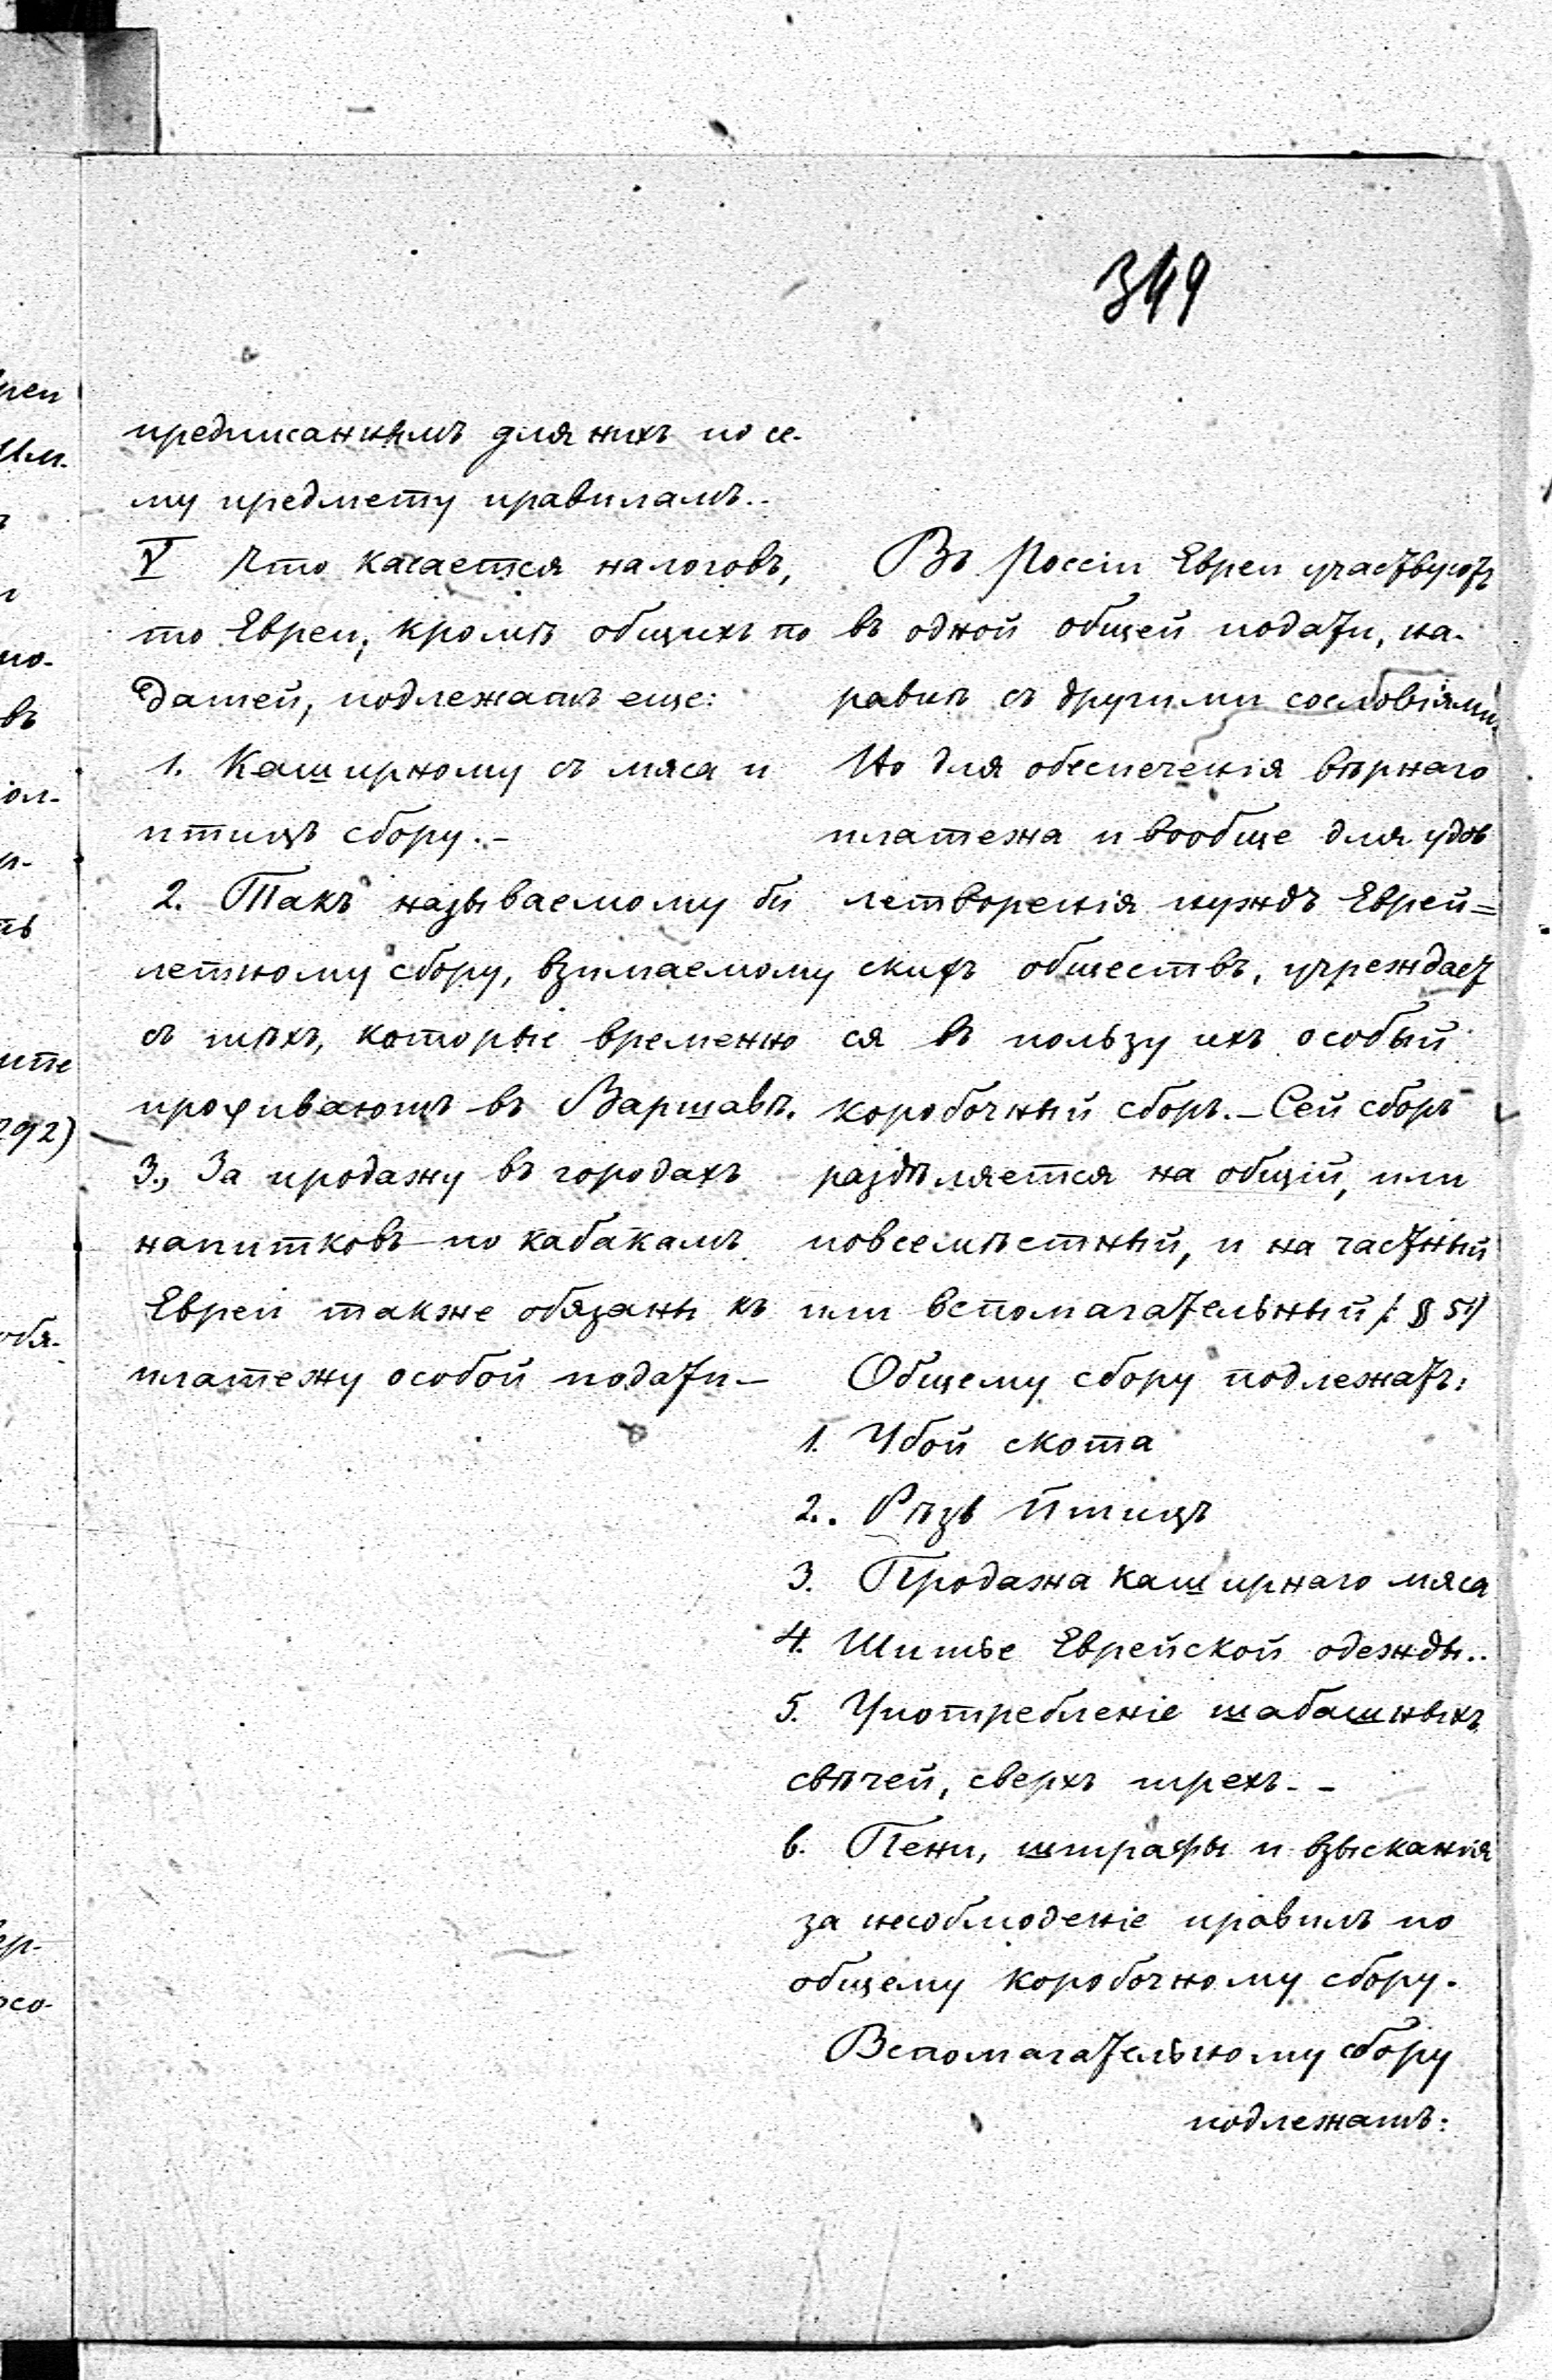 349
предписаннымъ для нихъ по се-
му предмету правиламъ.-
V Что касается налоговъ,
то Евреи, кромѣ общихъ по
датей, подлежатъ еще:
1. Каширному съ мяса и
птицъ сбору.-
2. Такъ называемому би
летному сбору, взимаемому
съ тѣхъ, которые временно
проживаютъ въ Варшавѣ.
3., За продажу въ городахъ
напитковъ по кабакамъ
Евреи также обязаны къ
платежу особой подати-
Въ Россіи Евреи участвуютъ
въ одной общей подати, на-
равнѣ съ другими сословіями.
Но для обеспеченія вѣрнаго
платежа и вообще для удов
летворенія нуждъ Еврей=
скихъ обществъ, учреждает
ся въ пользу ихъ особый
коробочный сборъ.- Сей сборъ
раздѣляется на общій, или
повсемѣстный, и на частный
или вспомагательный /: § 51)
Общему сбору подлежатъ:
1. Убой скота
2. Рѣзъ птицъ
3. Продажа каширнаго мяса
4. Шитье Еврейской одежды..
5. Употребленіе шабашныхъ
свѣчей, сверхъ трехъ. -
6. Пени, штрафы и взысканія
за несоблюденіе правилъ по
общему коробочному сбору.
Вспомагательному сбору
подлежатъ: